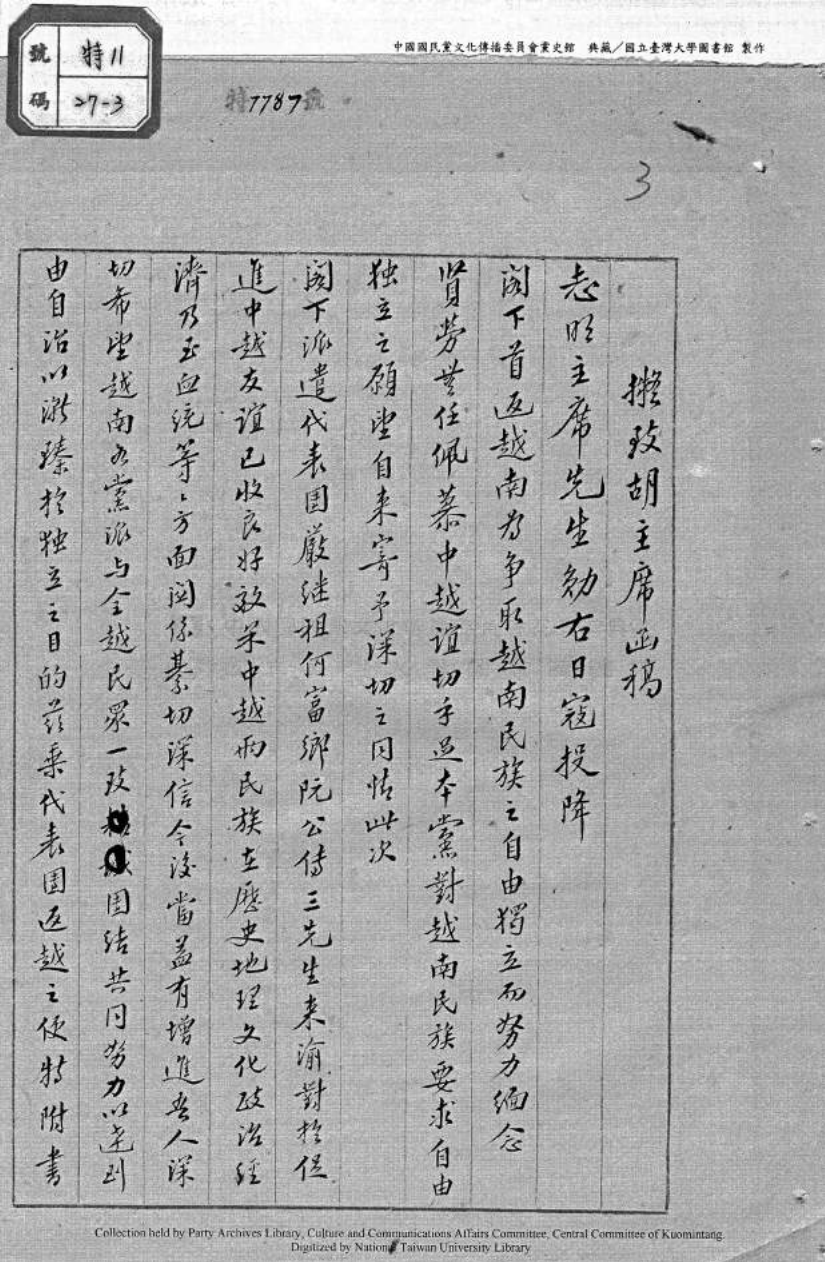 中國國民黨文化傳播委員會黨史館　典藏／國立臺灣大學圖書館 製作
號碼
特11
27-3
特7787號
3
擬致胡主席函稿
志明主席先生勛右日寇投降
閣下首返越南為争取越南民族之自由獨立而努力緬念
賢勞無任佩慕中越誼切手足本黨對越南民族要求自由
独立之願望自来寄予深切之同情此次
阁下派遣代表团嚴继祖何富鄉阮公傳三先生来渝對於促
進中越友誼已收良好效果中越兩民族在歷史地理文化政治經
濟乃至血统等等方面関係綦切深信今後當益有增進吾人深
切希望越南各黨派与全越民眾一致团结共同努力以达到
由自治以漸臻於独立之目的兹乘代表团返越之便特附書
Collection held by Party Archives Library, Culture and Communications Affairs Committee, Central Committee of Kuomintang.
Digitized by National Taiwan University Library